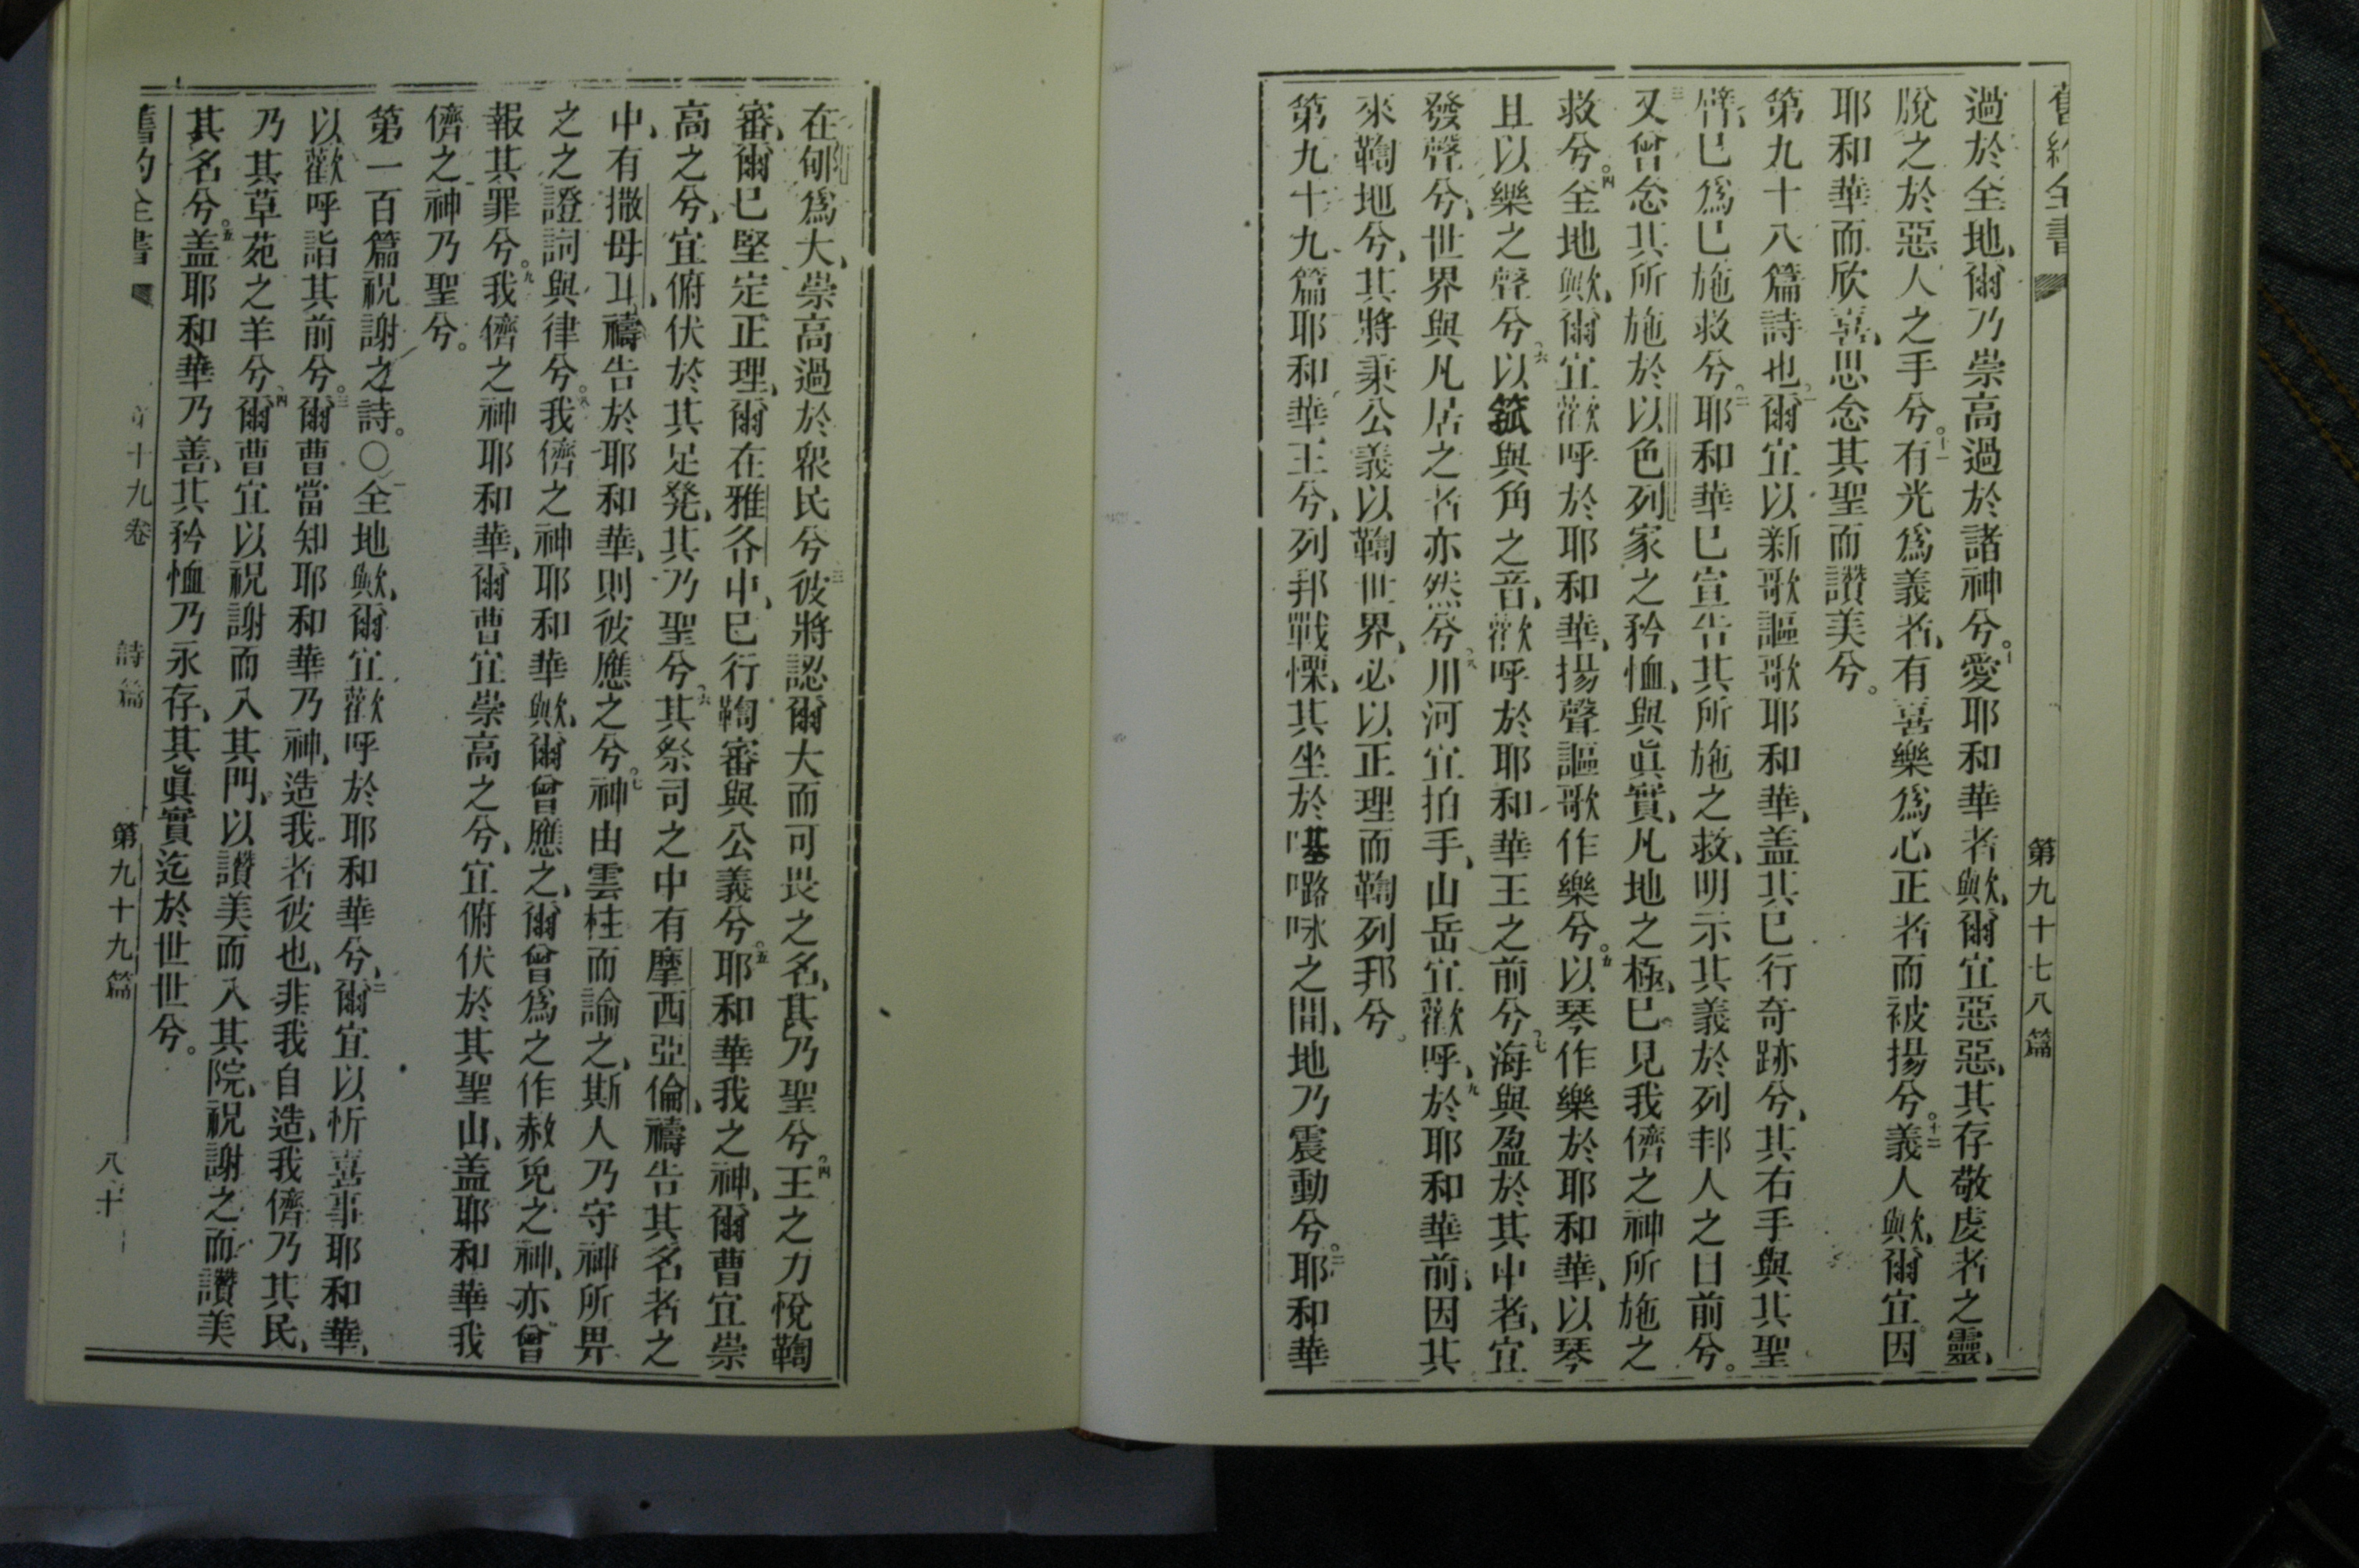 舊約全書 第九十七八篇
過於全地、爾乃崇高過於諸神兮。十愛耶和華者歟、爾宜惡惡、其存敬虔者之靈、
脫之於惡人之手兮。十一有光爲義者、有喜樂爲心正者而被揚兮。十二義人歟、爾宜因
耶和華而欣喜、思念其聖而讚美兮。
第九十八篇詩也。一爾宜以新歌謳歌耶和華、盖其已行奇跡兮、其右手與其聖
臂、已爲己施救兮。二耶和華已宣吿其所施之救、明示其義於列邦人之目前兮。
三又曾念其所施於以色列家之矜恤、與眞實、凡地之極、已見我儕之神所施之
救兮。四全地歟、爾宜歡呼於耶和華、揚聲謳歌作樂兮。五以琴作樂於耶和華、以琴
且以樂之聲兮。六以箛與角之音、歡呼於耶和華王之前兮。七海與盈於其中者、宜
發聲兮、世界與凡居之者亦然兮。八川河宜拍手、山岳宜歡呼、九於耶和華前、因其
來鞫地兮、其將秉公義以鞫世界、必以正理而鞫列邦兮。
第九十九篇耶和華王兮、列邦戰慄、其坐於𠻳嚕咏之間、地乃震動兮。二耶和華
在郇爲大、崇高過於衆民兮三彼將認爾大而可畏之名、其乃聖兮四王之力悅鞫
審、爾已堅定正理、爾在雅各中、已行鞫審與公義兮。五耶和華我之神、爾曹宜崇
高之兮、宜俯伏於其足凳、其乃聖兮。六其祭司之中有摩西亞倫、禱告其名者之
中、有撒母耳、禱告於耶和華、則彼應之兮。七神由雲柱而諭之、斯人乃守神所畀
之之證詞與律兮。八我儕之神耶和華歟、爾曾應之、爾曾爲之作赦免之神、亦曾
報其罪兮。九我儕之神耶和華、爾曹宜崇高之兮、宜俯伏於其聖山、盖耶和華我
儕之神乃聖兮。
第一百篇祝謝之詩。○一全地歟、爾宜歡呼於耶和華兮、二爾宜以忻喜事耶和華、
以歡呼詣其前兮。三爾曹當知耶和華乃神、造我者彼也、非我自造、我儕乃其民、
乃其草苑之羊兮。四爾曹宜以祝謝而入其門、以讚美而入其院、祝謝之而讚美
其名兮。五盖耶和華乃善、其矜恤乃永存、其眞實迄於世世兮。
舊約全書 第十九卷 詩篇 第九十九篇 八十